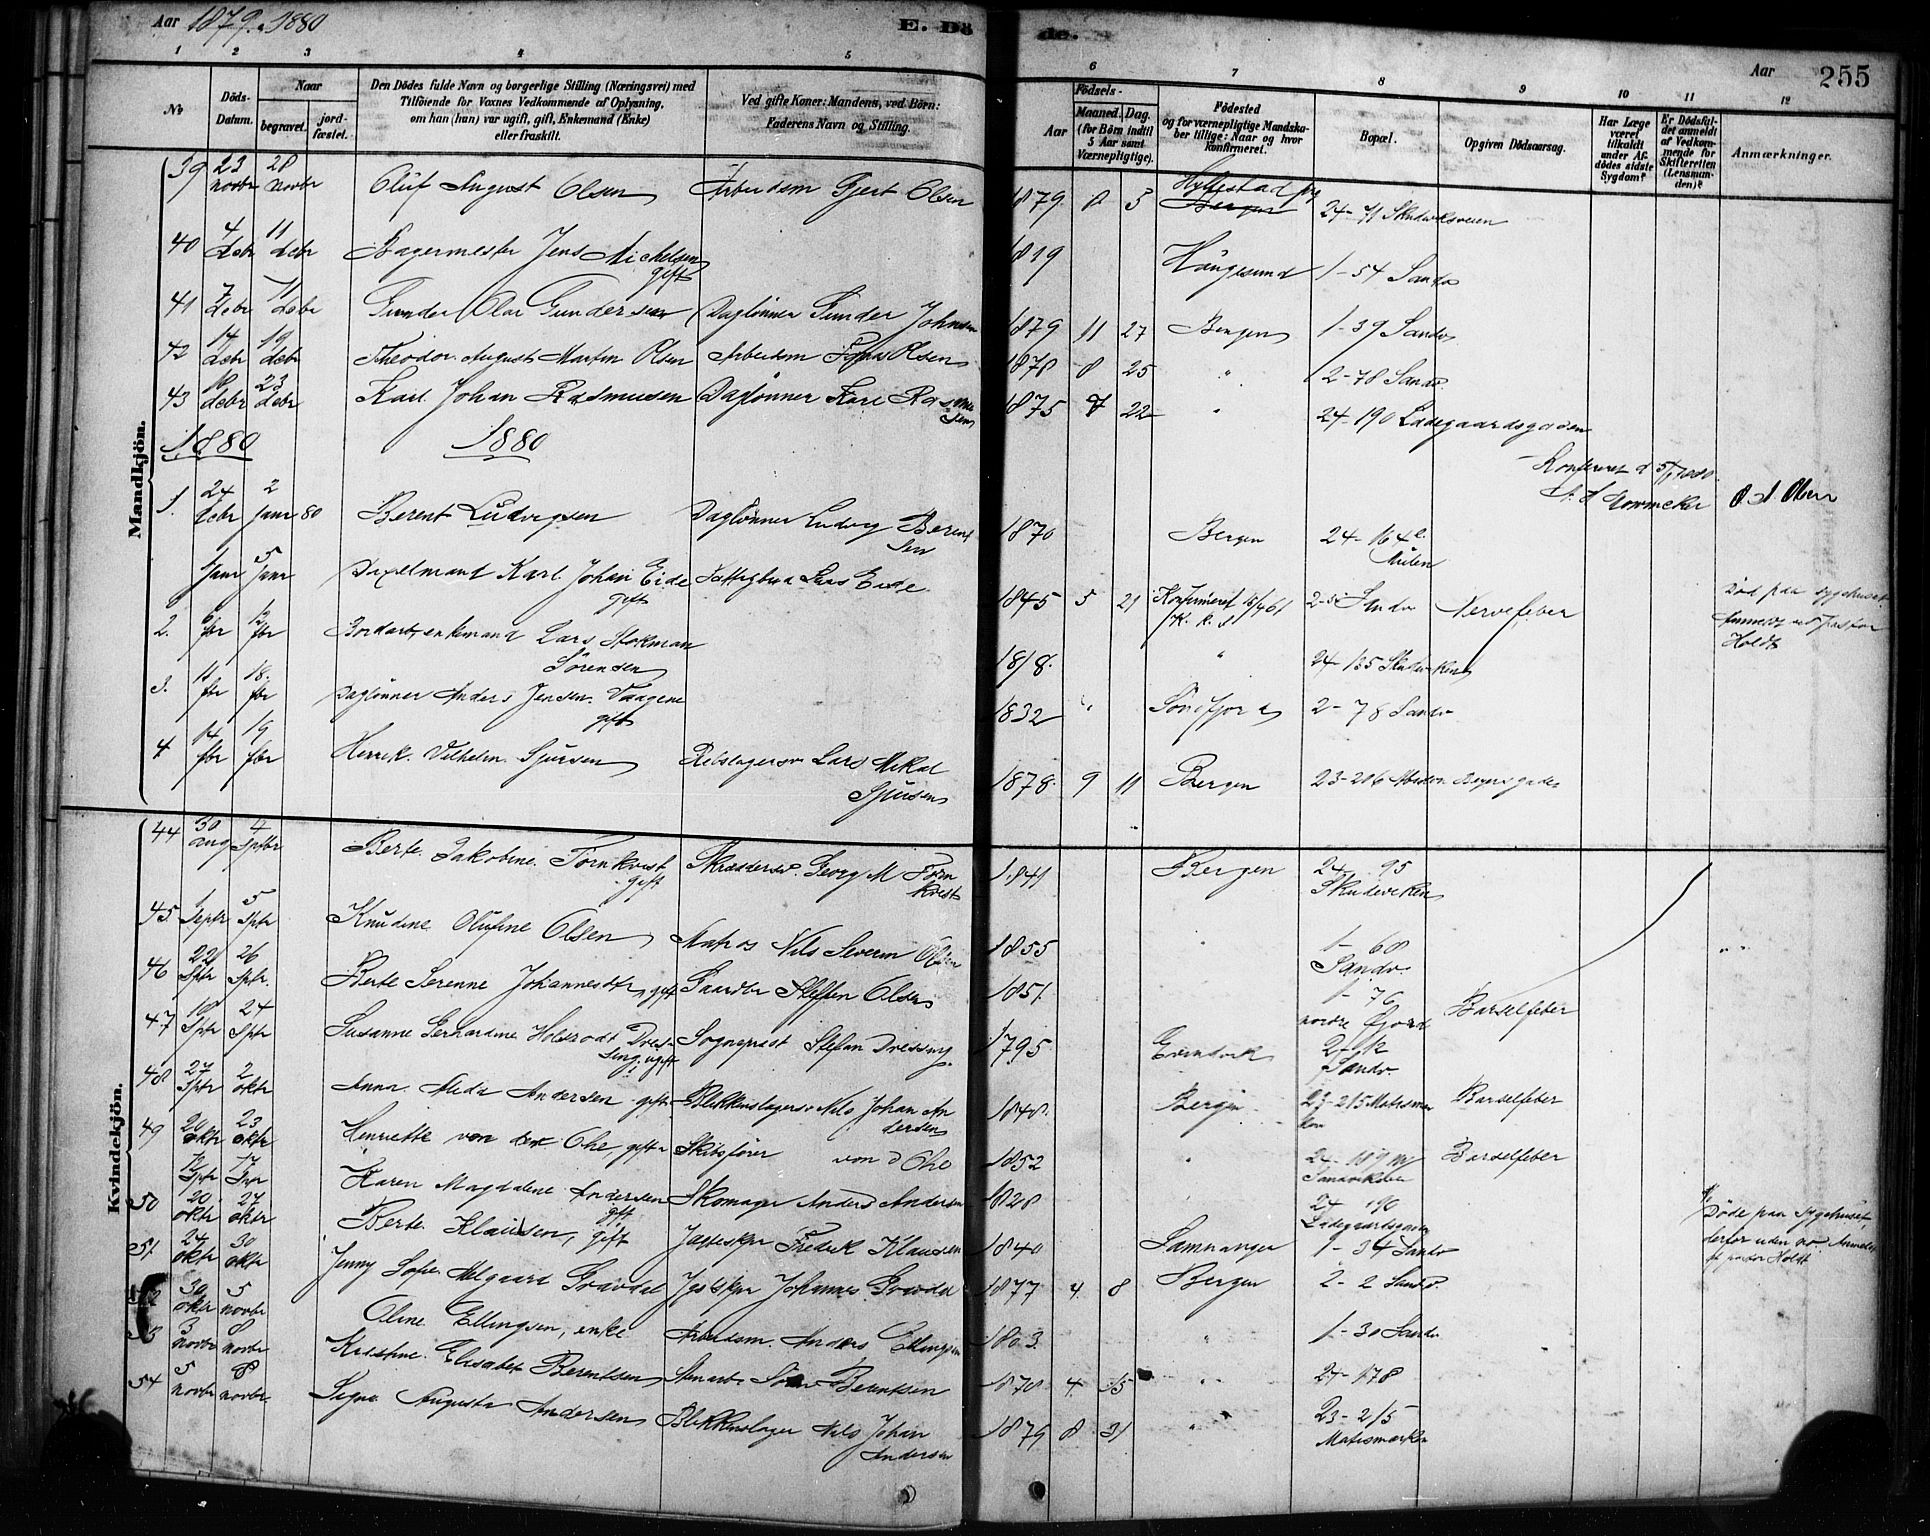 Aar 1879. 1880
E. Dö
de.
Aar 255
1 2 3 4 5 6 7 8 9 10 11 12
No
Döds-
Datum.
Naar
begravet.
jord-
fæstet.
Den Dödes fulde Navn og borgerlige Stilling (Næringsvei) med
Tilföiende for Voxnes Vedkommende af Oplysning,
om han (hun) var ugift, gift, Enkemand (Enke)
eller fraskilt.
Ved gifte Koner: Mandens, ved Börn:
Faderens Navn og Stilling.
Födsels-
Aar
Maaned. Dag.
(for Börn indtil
5 Aar samt
Værnepligtige).
Födested
og for værnepligtige Mandska-
ber tillige: Naar og hvor
konfirmeret.
Bopæl.
Opgiven Dödsaarsag.
Har Læge
været
tilkaldt
under Af-
dödes sidste
Sygdom?
Er Dödsfal-
det anmeldt
af Vedkom-
mende for
Skifteretten
(Lensman-
den)?
Anmærkninger.
Mandkjön.
39 23 novbr 28 novbr Oluf August Olsen Arbeidsm Gjert Olsen 1879 8 3 Hyllestad prg Bergen 24-71 Skudeviksveien
40 4 debr 11 debr Bagermester Jens Michelsen gift 1819 Haugesund 1-54 Sandv
41 7 debr 11 debr Gunder Olai Gundersen Daglönner Gunder Johnsen 1879 11 27 Bergen 1-39 Sandv
42 14 debr 19 debr Theodor August Martin Olsen Arbeidsm Olsen 1878 8 25 " 2-78 Sandv.
43 debr 23 debr Karl Johan Rasmussen Daglönner Karl Rasmussen 1875 7 22 " 24-190 Ladegaardsgaden
1880 1880
Konfereret d 5/1 1880.
O. A. Olsen
1. 24 debr 2 janr 80 Berent Ludvigsen Daglönner Ludvig Berentsen 1870 Bergen 24-164 c. Mulen
janr 5 janr Dixelmand Karl Johan Eide gift Lars Eide 1845 5 21 Konfirmeret Sandv Nervefeber Död paa Sygehuset Anmeldt ved pastor Holdt
2. fbr 12 fbr enkemand Lars Stokman Sörensen 1818. " 24-135 Skudeviken
3. fbr 18. fbr Daglönner Anders Jensen Vaagene gift 1832 Söndfjord 2-78 Sandv
4 14 fbr 19 fbr Henrik Vilhelm Sjursen Rebslagersv Lars Mikal Sjursen 1878. 9 11 Bergen 23-206 Absalon Beyers gade
Kvindekjön.
44 30 aug 4 Sptbr Berte Jakobine Törnkvist gift Skræddersv. Georg M Törnkvist 1841 Bergen 24 95 Skudeviken
45 1 Septr 5 Sptr Knudine Olufine Olsen Matros Nils Severin Olsen 1855 " 1-68 Sandv.
46 22 Sptr 26 Sptr. Berte Serenne Johannesdtr gift Gaardbr Steffen Olsen 1851. 1-76 nordre Fjord Barselfeber
47 Sptr 24 Sptr Susanne Gerhardine Dressing, ugift Sogneprest Stefan Dressing 1795 Evindvik Sandv.
48 27 Sptr 2 oktr Anna Andersen gift Blikkenslagersv Nils Johan Andersen 1848. Bergen 23-215 Matismarken Barselfeber
49 20 oktr 23 oktr Henriette von der Ohe, gift Skibsförer von d Ohe 1852 " Sandviken Barselfeber
Sptr 17 Karen Magdalene Andersen gift Skomager Anders Andersen 1828 24 190 Ladegaardsgaden Döde paa Sygehuset derfor uden no. Anmeldt
50 20 oktr 27 oktr Berte Klausen, gift Jægteskpr Fredrik Klausen 1840 Samnanger 1-34 Sandv
51 24 oktr 30 oktr Jenny Sofie Gravdal Jægtskpr Johannes Gravdal 1877 4 8 Bergen 2-2 Sandv.
52 30 oktr 5 novbr Oline Ellingsen, enke Arbeidsm. Anders Ellingsen 1803 " 1-30 Sandv
53 3 novbr 8 novbr Kristine Elisabet Berentsen Berentsen 1878 4 15 " 24-178
54 5 novbr 8 novbr. Signe Augusta Andersen Blikkenslager Nils Johan Andersen 1879 8 31 " 23-215 Matismarken